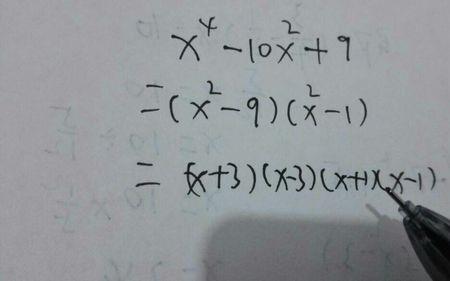 x⁴ - 10x² + 9
= (x² - 9)(x² - 1)
= (x+3)(x-3)(x+1)(x-1)